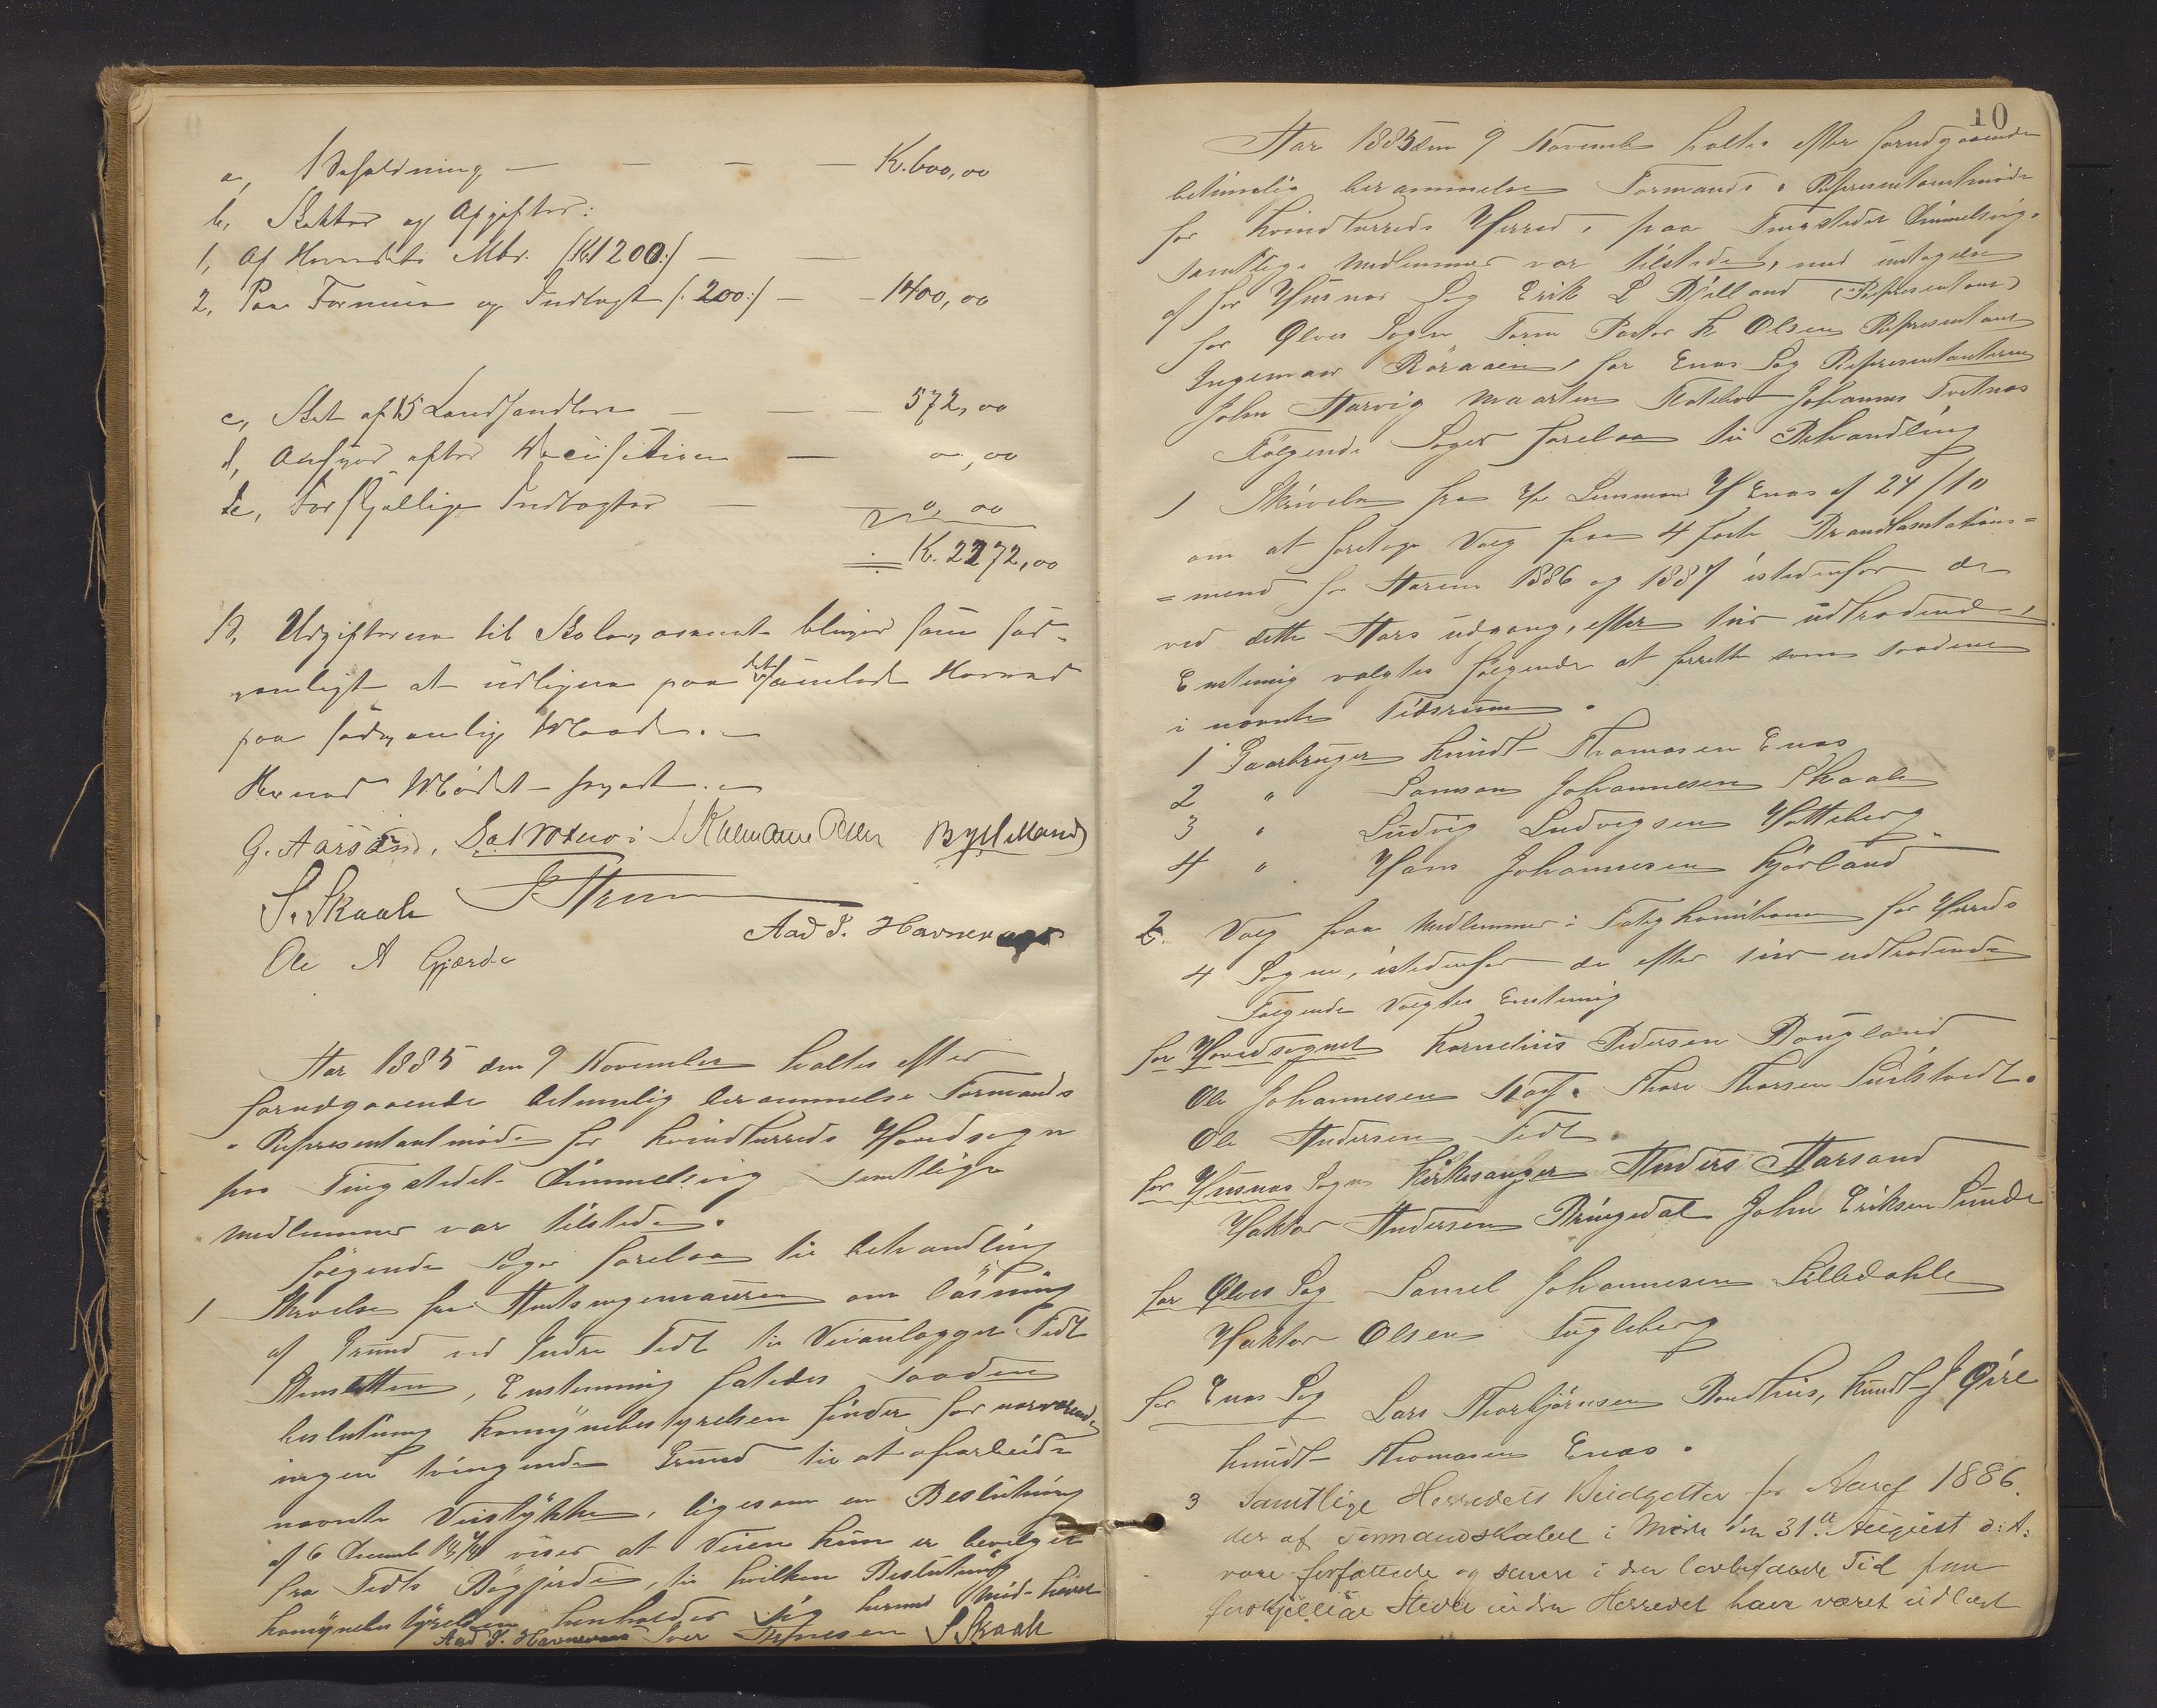 a, Beholdning — — — — K. 600,00
b, Skatter og Afgifter:
1, Af Herredets Mtr. (K. 1200:/) — —
2, Paa Formue og Indtægt (: 200:/) — — 1400,00
c, Skat af 15 Landhandlere — — — 572,00
d, Arbeider efter — 0,00
e, Forskjellige Indtægter — 0,00
K. 2272,00
B, Udgifterne til Skolevæsenet bliver som sæd-
vanligt at udligne paa det samlede Herred
paa sædvanlig Maade. —
Hermed Mødet hævet. —
G. Aarsand,
S. Skaale
Aad J. Havnevaag
Ole A Gjærde
Aar 1885 den 9 November holdtes efter
forudgaaende betimelig berammelse Formands
& Representantmøde for Kvindherreds Hovedsogn
paa Tingstedet Dimmelsvig samtlige
medlemmer var tilstede.
følgende Sager forelaa til behandling
1 Skrivelse fra Amtsingeniøren om løsning
af Grund ved Indre Tedt til Veianlægget Tedt
, Enstemmig fatedes saaden
beslutning Komynebestyrelsen finder for nærværende
ingen tvingende Grund til at oparbeide
nævnte Veistykke, ligesom en Beslutning
af 6 Decemb viser at Veien kun er bevilget
fra Tedts Bøgjerde, til hvilken Beslutning
Komynebestyrelsen henholder sig hermed Mød. hævet
Aad J. Havnevaag Iver S Skaale
10
Aar 1885 den 9 Novemb holtes efter forudgaaende
betimelig berammelse Formands & Representantmøde
for Kvindherreds Herred, paa Tingstedet Dimmelsvig.
samtlige medlemmer var tilstede, med undtagelse
af for Husnes Sog Erik L Bjelland (Representant)
for Ølves Sogn Form Pastor K Olsen Representant
Ingemaar Røraaen, for Enæs Sog Representanterne
John Harvig Maarten Flatebø Johannes Tveitnæs
Følgende Sager forelaa til Behandling
1 Skrivelse fra Hr Lensmand H Enæs af 24/10
om at foretage Valg paa 4 faste Brandtaxtations=
=mend for Aarene 1886 og 1887 istedenfor de
ved dette Aars udgang, efter tur udtrædende,
Enstemig valgtes følgende at forrette som saadene
i nævnte Tidsrum.
1 Gaarbruger Knudt Thomasen Enæs
2 " Samson Johannesen Skaale
3 " Ludvig Ludvigsen Hatteberg
4 " Hans Johannesen Kjærland
2. Valg paa Medlemmer i Fatig Komitionen for Herreds
4 Sogne, istedenfor de efter tur udtrædende
Følgende Valgtes Enstemig
for Hovedsognet Kornelius Pedersen Bougland
Ole Johannesen Næs. Thore Thorsen Guilstvedt.
Ole Andersen Tedt.
for Husnæs Sogn Kirkesanger Anders Aarsand
Haktor Andersen Bringedal John Eriksen Sunde
for Ølves Sog Samel Johannesen Lilledahle
Haktor Olsen Fugleberg
for Enæs Sog Lars Thorbjørnsen Bondhus, Knudt J Øire
Knudt Thomasen Enæs.
3 Samtlige Herredets Budgetter for Aaret 1886.
der af Formandskabet i Møde den 31te August d: A:
vare forfattede og senere i den lovbefalede Tid paa
forskjellige Steder inden Herredet have været udlagt